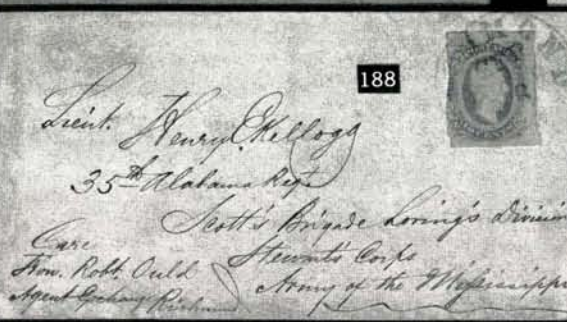 188
Lieut. Henry C. Kellogg
35th Alabama Regt
Scott's Brigade Loring's Division
Stewart's Corps
Army of the Mississippi
Care
Hon. Robt. Ould
Agent Exchange Richmond